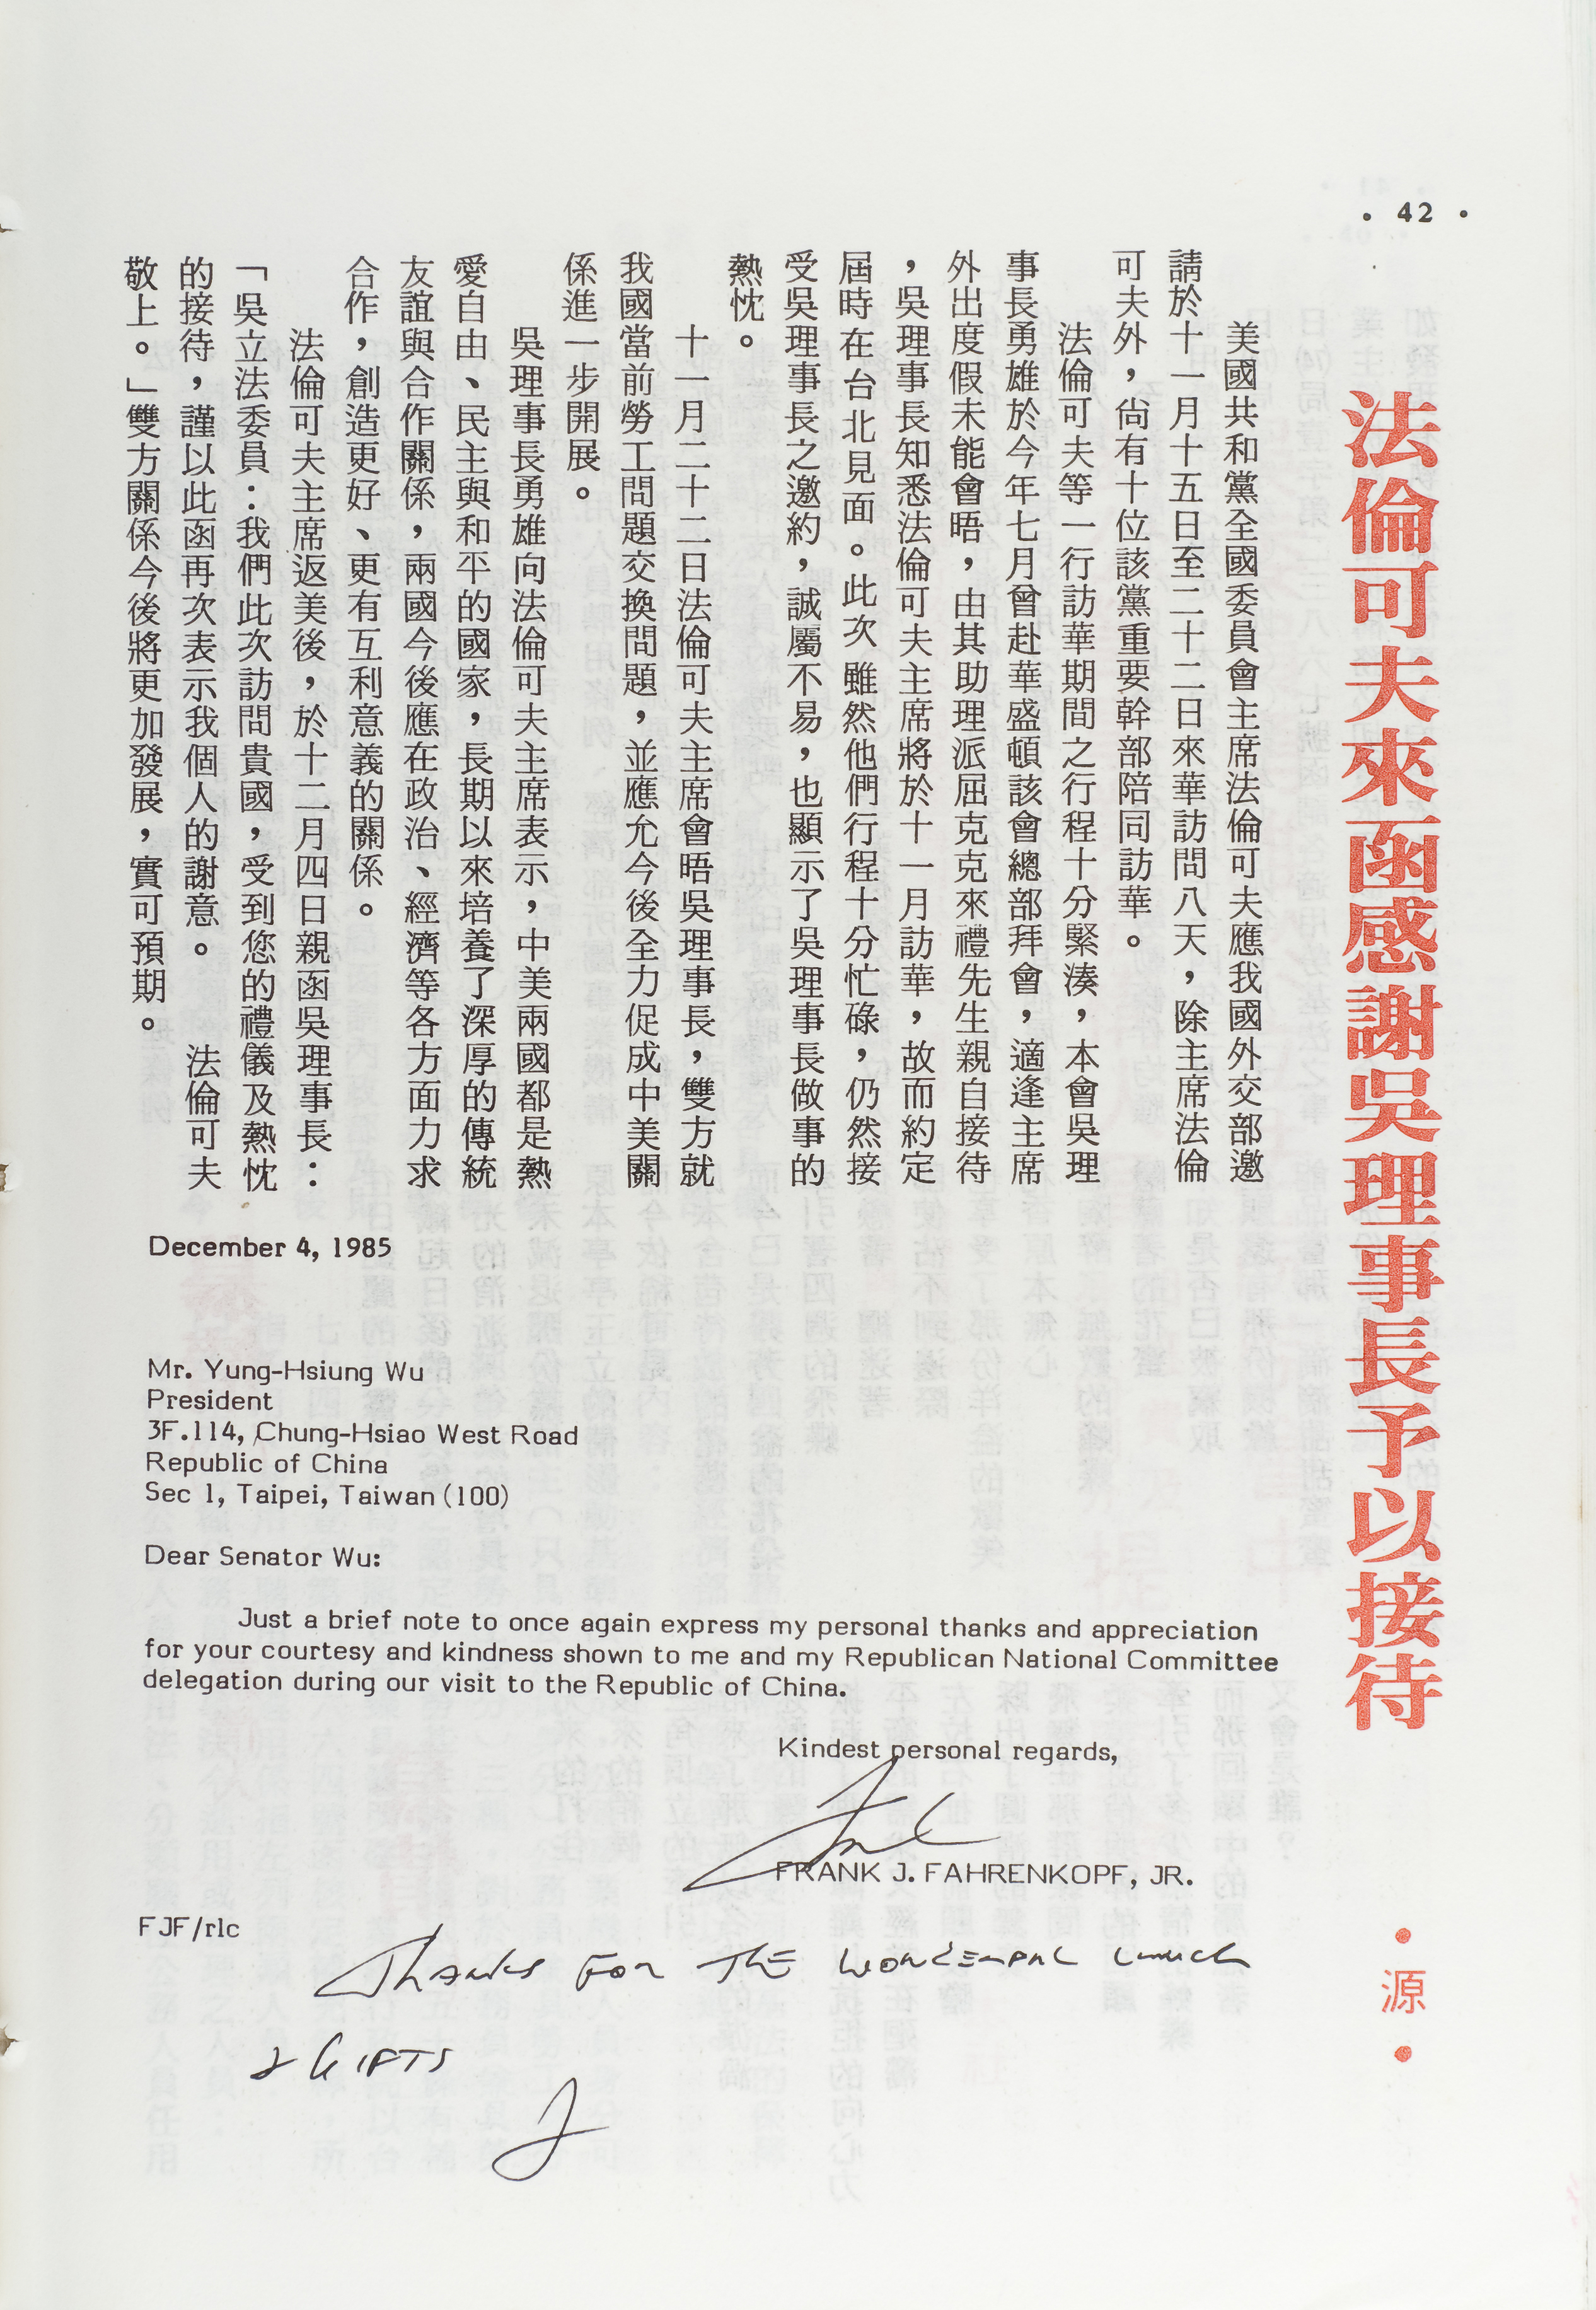 • 42 •
法倫可夫來函感謝吳理事長予以接待
•源•
美國共和黨全國委員會主席法倫可夫應我國外交部邀
請於十一月十五日至二十二日來華訪問八天，除主席法倫
可夫外，尚有十位該黨重要幹部陪同訪華。
法倫可夫等一行訪華期間之行程十分緊湊，本會吳理
事長勇雄於今年七月曾赴華盛頓該會總部拜會，適逢主席
外出度假未能會晤，由其助理派屈克克來禮先生親自接待
，吳理事長知悉法倫可夫主席將於十一月訪華，故而約定
屆時在台北見面。此次雖然他們行程十分忙碌，仍然接
受吳理事長之邀約，誠屬不易，也顯示了吳理事長做事的
熱忱。
十一月二十二日法倫可夫主席會晤吳理事長，雙方就
我國當前勞工問題交換問題，並應允今後全力促成中美關
係進一步開展。
吳理事長勇雄向法倫可夫主席表示，中美兩國都是熱
愛自由、民主與和平的國家，長期以來培養了深厚的傳統
友誼與合作關係，兩國今後應在政治、經濟等各方面力求
合作，創造更好、更有互利意義的關係。
法倫可夫主席返美後，於十二月四日親函吳理事長：
「吳立法委員：我們此次訪問貴國，受到您的禮儀及熱忱
的接待，謹以此函再次表示我個人的謝意。　法倫可夫
敬上。」雙方關係今後將更加發展，實可預期。
December 4, 1985
Mr. Yung-Hsiung Wu
President
3F.114, Chung-Hsiao West Road
Republic of China
Sec 1, Taipei, Taiwan (100)
Dear Senator Wu:
Just a brief note to once again express my personal thanks and appreciation
for your courtesy and kindness shown to me and my Republican National Committee
delegation during our visit to the Republic of China.
Kindest personal regards,
Frank
FRANK J. FAHRENKOPF, JR.
FJF/rlc
Thanks for the wonderful lunch
& Gifts
F